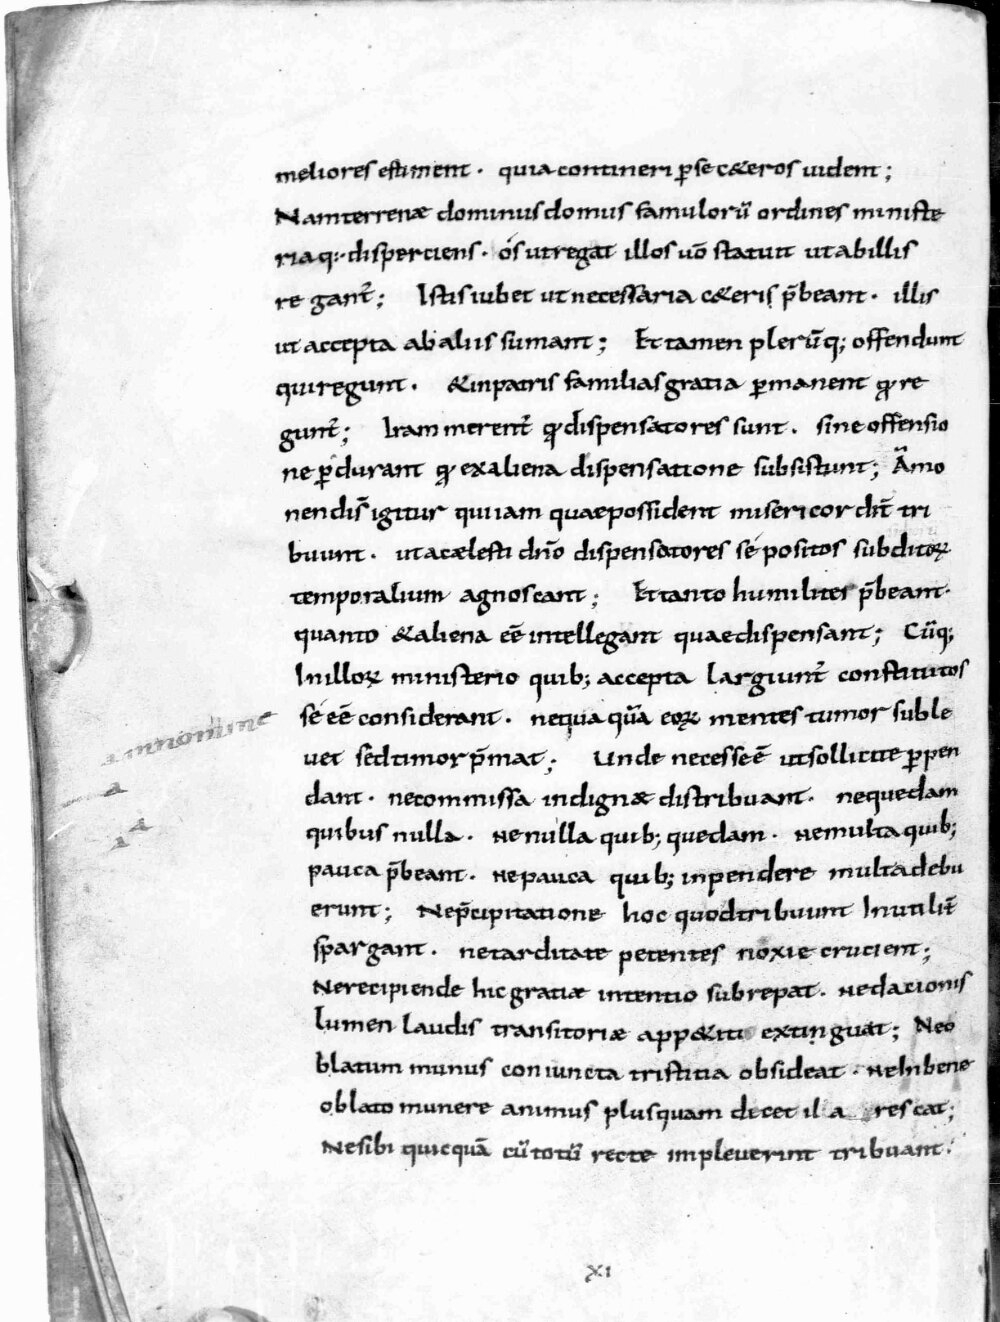 meliores estiment. quia contineri p̱ se c&eros uident;
Nam terrenæ dominus domus famulorū ordines ministe
riaq:· disperciens. ós ut regat illos uō statuit ut ab illis
regant̄; Istis iubet ut necessaria c&eris p̄beant. illis
ut accepta ab aliis sumant; Et tamen plerūq; offendunt
qui regunt. & in patris familias gratia p̱manent q̱ re
gunt̄; Iram merent̄ q̱ dispensatores sunt. sine offensio
ne p̱durant q̱ ex aliena dispensatione subsistunt; Āmo
nendis̄ igitur qui iam quae possident misericordit̄ tri
buunt. ut a cælesti dn̄o dispensatores sé positos subditoꝝ
temporalium agnoscant; Et tanto humilites p̄beant.
quanto & aliena eē intellegant quae dispensant; Cūq;
In illoꝝ ministerio quib; accepta largiunt̄ constitutos
sé eē considerant. nequaquā eoꝝ mentes tumor suble
uet sed timor p̄mat; Unde necesse ē ut sollicite p̱pen
dant. ne commissa indignæ distribuant. ne quedam
quibus nulla. ne nulla quib; quedam. ne multa quib;
pauca p̄beant. ne pauca quib; inpendere multa debu
erunt; Ne p̄cipitatione hoc quod tribuunt Inutilit̄
spargant. ne tarditate petentes noxie crucient;
Ne recipiende hic gratiæ intentio subrepat. ne dationis
lumen laudis transitoriæ app&itu extinguat; Ne o
blatum munus coniuncta tristitia obsideat. ne In bene
oblato munere animus plusquam decet il a rescat;
Ne sibi quicquā cū totū recte impleuerint tribuant.
in nomine
XI